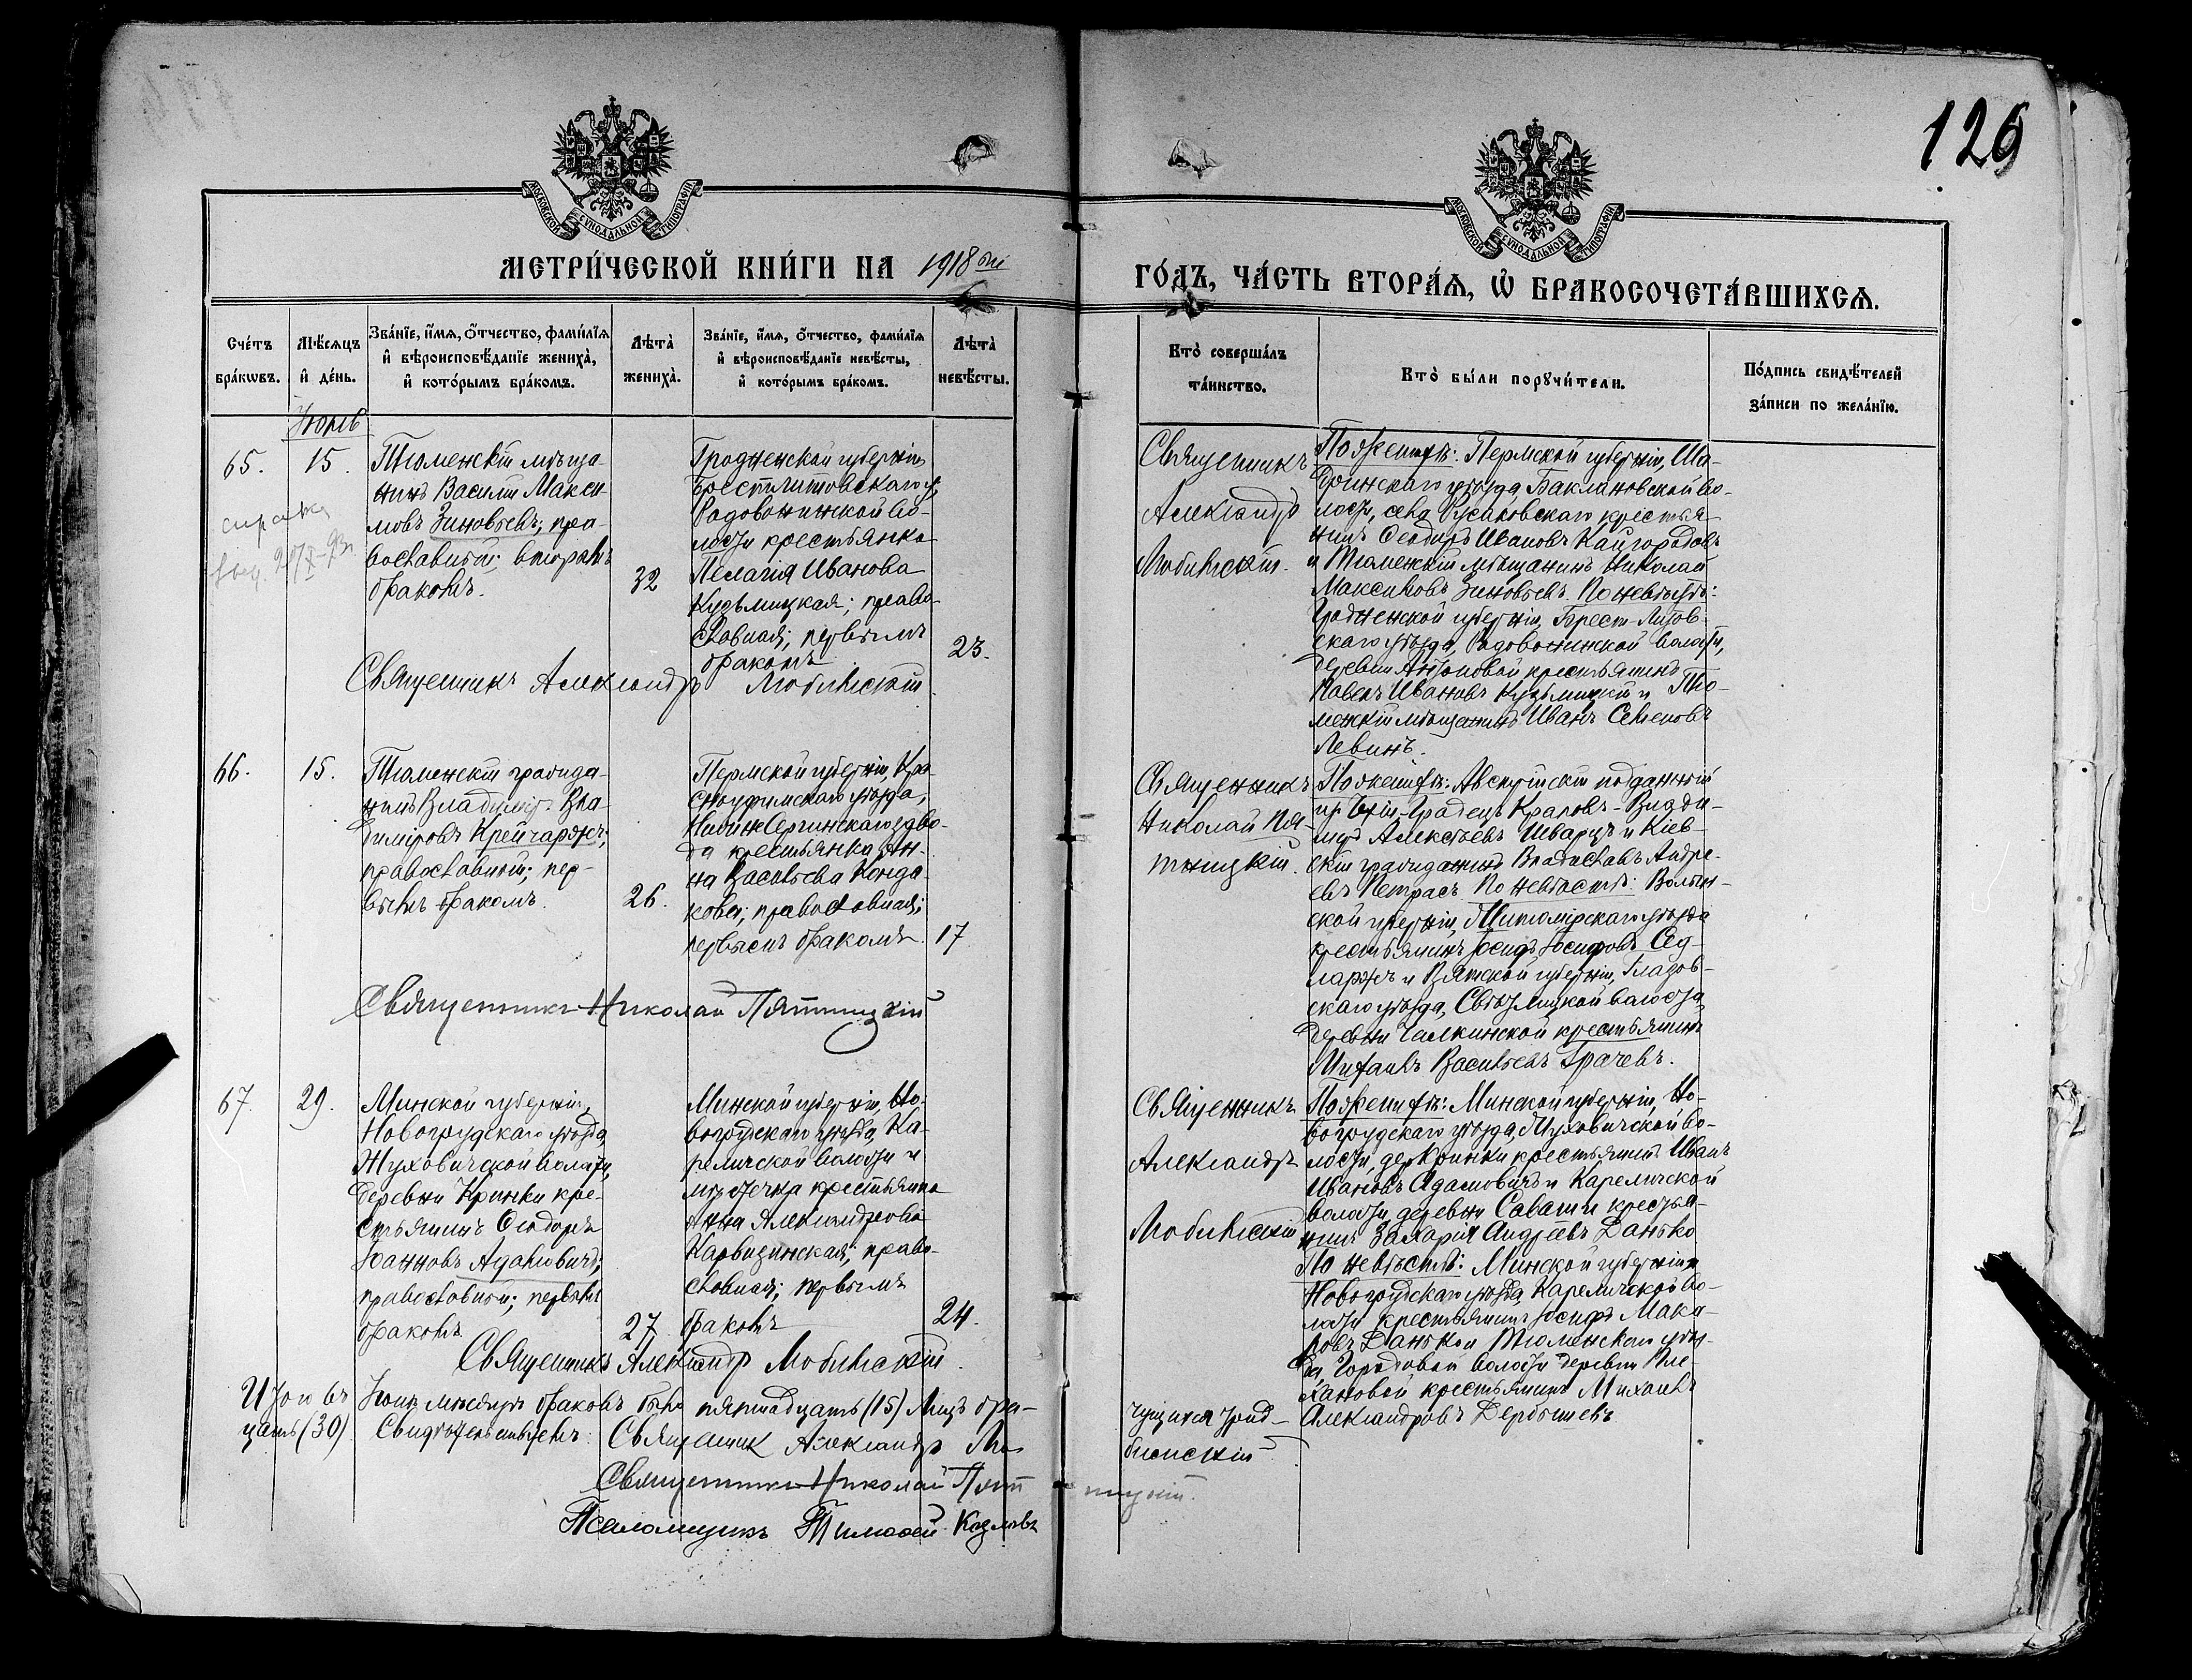 126
МОСКОВСКОЙ СѴНОДАЛЬНОЙ ТИПОГРАФІИ
МОСКОВСКОЙ СѴНОДАЛЬНОЙ ТИПОГРАФІИ
МЕТРИ́ЧЕСКОЙ КНИ́ГИ НА 1918
ГО́ДЪ, ЧА́СТЬ ВТОРА́Ѧ, Ѡ҆ БРАКОСОЧЕТА́ВШИХСѦ.
Сче́тъ
бра́кѡвъ.
Мѣ́сяцъ
и҆ де́нь.
Зва́нїе, и҆́мѧ, о҆́тчество, фами́лїѧ
и҆ вѣроисповѣ́данїе жениха̀,
и҆ кото́рымъ бра́комъ.
Лѣта̀
жениха̀.
Зва́нїе, и҆́мѧ, о҆́тчество, фами́лїѧ
и҆ вѣроисповѣ́данїе невѣ́сты,
и҆ кото́рымъ бра́комъ.
Лѣта̀
невѣ́сты.
Кто̀ соверша́лъ
та́инство.
Кто̀ бы́ли порꙋчи́тели.
По́дпись свидѣ́телей
за́писи по жела́нїю.
65.
15.
Тюменскій мѣща-
нинъ Василій Макси-
мовъ Зиновьевъ; пра-
вославный; вторымъ
бракомъ.
32
Гродненской губерніи
Брестлитовскаго у,
Радовонижской во-
лости крестьянка
Пелагія Иванова
Кузьмицкая; право-
славная; первымъ
бракомъ
23.
Священникъ Александръ
Священникъ
Александръ
Поженихѣ: Пермской губерніи, Ша-
дринскаго уѣзда, Баклановской во-
лости, села Русаковскаго крестья-
нинъ Ѳеодоръ Ивановъ Кайгородовъ
и Тюменскій мѣщанинъ Николай
Максимовъ Зиновьевъ. По невѣстѣ:
Гродненской губерніи, Брест-Литов-
скаго уѣзда, Радовонижской волости,
деревни Антоновой крестьянинъ
Павелъ Ивановъ Кузьмицкій и Тю-
менскій мѣщанинъ Иванъ Семеновъ
Левинъ.
66.
15.
Тюменскій гражда-
нинъ Владиміръ Вла-
диміровъ Крейчаржъ;
православный; пер-
вымъ бракомъ.
26.
Пермской губерніи, Кра-
сноуфимскаго уѣзда,
НижнеСергинскаго заво-
да крестьянка Ан-
на Васильева Конда-
кова; православная;
первымъ бракомъ.
17
Священникъ Николай Пятницкій
Священникъ
Николай Пя-
тницкій.
Поженихѣ: Австрійскій подданный
Алексѣевъ Шварцъ и Кіев-
скій гражданинъ Владиславъ Андре-
евъ Петрасъ По невѣстѣ: Волын-
ской губерніи, Житомірскаго уѣзда
крестьянинъ Іосифъ Іосифовъ Сед-
ларжъ и Вятской губерніи, Глазов-
скаго уѣзда, волости,
деревни Чалкинской крестьянинъ
Михаилъ Васильевъ Грачевъ.
67.
29.
Минской губерніи,
Новогрудскаго уѣзда,
Жуховичской волости,
деревни Кринки кре-
стьянинъ Ѳеодоръ
Іоанновъ Адамовичъ;
православный; первымъ
бракомъ
27.
Минской губерніи, Но-
вогрудскаго уѣзда, Ка-
реличской волости и
мѣстечка крестьянка
Анна Александрова
Карвизинская; право-
славная; первымъ
бракомъ
24.
Священникъ Александръ
Священникъ
Александръ
Поженихѣ: Минской губерніи, Но-
вогрудскаго уѣзда, Жуховичской во-
лости, дер Кринки крестьянинъ Иванъ
Ивановъ Адамовичъ и Кареличской
волости деревни Савати крестья-
нинъ Захарія Андреевъ Данько
По невѣстѣ: Минской губерніи
Новогрудскаго уѣзда, Кареличской во-
лости крестьянинъ Іосифъ Мака-
ровъ Данько и Тюменскаго уѣз-
да, Городовой волости деревни Пле-
хановой крестьянинъ Михаилъ
Александровъ Дербышевъ
Итого въ мѣсяцѣ браковъ было пятнадцать (15) Лицъ
(30) Свидѣтельствуемъ: Священникъ Александръ
Священникъ Николай Пятницкій.
Псаломщикъ Тимоѳей Козловъ